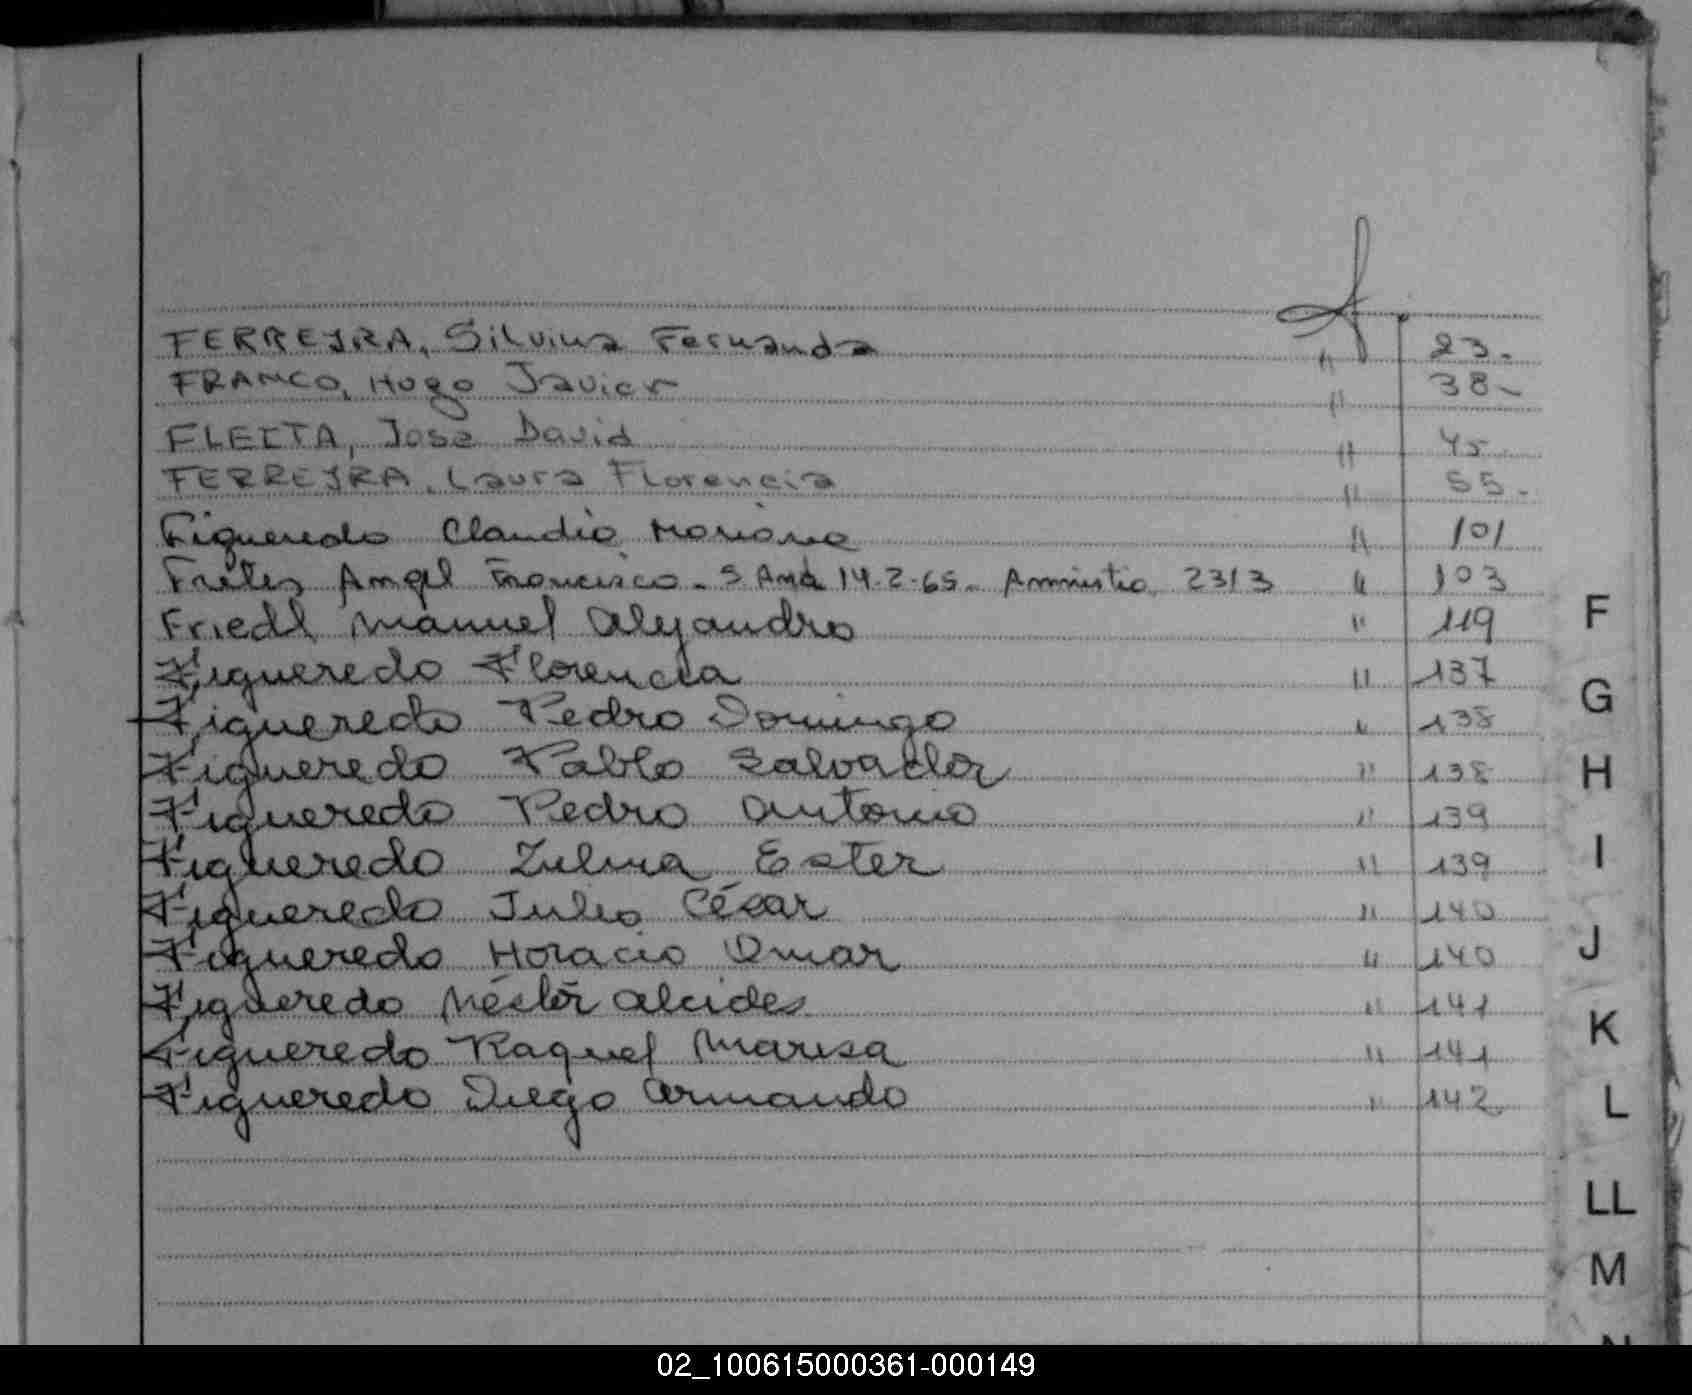 FERREJRA, Silvina Fernanda " 23.
FRANCO, Hugo Javier " 38-
FLEITA, Jose David " 45
FERREJRA, Laura Florencia " 55.
Figueredo Claudio Mariano " 101
Fretes Angel Francisco - S Ana 14-2-65- Amnistia 2313 " 103
Friedl Manuel Alejandro " 119
Figueredo Florencia " 137
Figueredo Pedro Domingo " 138
Figueredo Pablo Salvador " 138
Figueredo Pedro Antonio " 139
Figueredo Zulma Ester " 139
Figueredo Julio César " 140
Figueredo Horacio Omar " 140
Figueredo Néstor Alcides " 141
Figueredo Raquel Marisa " 141
Figueredo Diego Armando " 142
F
G
H
I
J
K
L
LL
M
N
02_100615000361-000149